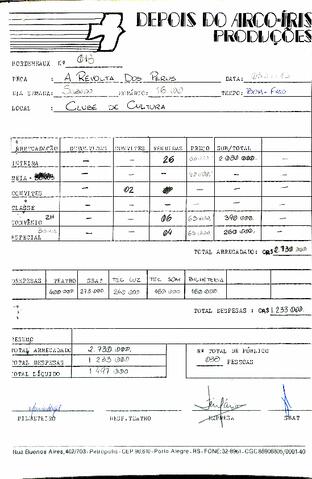 DEPOIS DO ARCO-ÍRIS
PRODUÇÕES
BORDEREAUX Nº 013
PEÇA : A REVOLTA DOS PERUS DATA:
DIA SEMANA: SÁBADO HORÁRIO: 16:00 TEMPO: BOM-FRIO
LOCAL : CLUBE DE CULTURA
ARRECADAÇÃO CONVITES VENDIDAS PREÇO SUB/TOTAL
INTEIRA — — 26 2 080 000.
MEIA — — — —
CONVITES — 02 — —
CLASSE — — — — —
CONVÊNIO — — 06 65 000. 390 000.
ESPECIAL — — 04 65 000. 260 000.
TOTAL ARRECADADO: CR$ 2.730 000.
DESPESAS TEATRO SBAT TEC LUZ TEC SOM BILHETERIA
400 000 273 000 240 000 160 000 160 000
TOTAL DESPESAS : CR$ 1 233 000.
RESUMO
TOTAL ARRECADADO 2.730 000.
TOTAL DESPESAS 1 233 000.
TOTAL LÍQUIDO 1 497 000.
Nº TOTAL DE PÚBLICO
PESSOAS
BILHETEIRO RESP.TEATRO EMPRESA SBAT
Rua Buenos Aires, 402/703 - Petrópolis - CEP 90.610 - Porto Alegre - RS - FONE: 32-8961 - CGC 88908805/0001-40